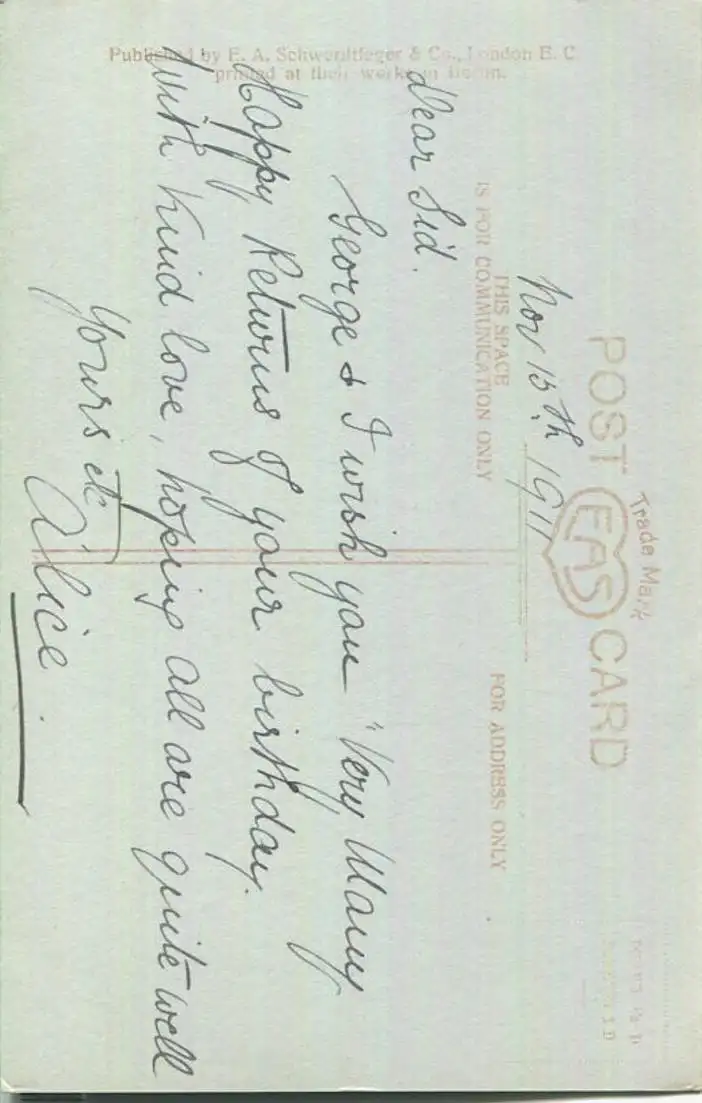 Published by E. A. Schwerdtfeger & Co., London E. C.
printed at their works in Berlin.
Trade Mark
POST EAS CARD
Nov 15th 1911
THIS SPACE
IS FOR COMMUNICATION ONLY
FOR ADDRESS ONLY
Dear Sid.
George & I wish you "Very Many
Happy Returns of your birthday.
With kind love, hoping all are quite well
Yours etc
Alice.